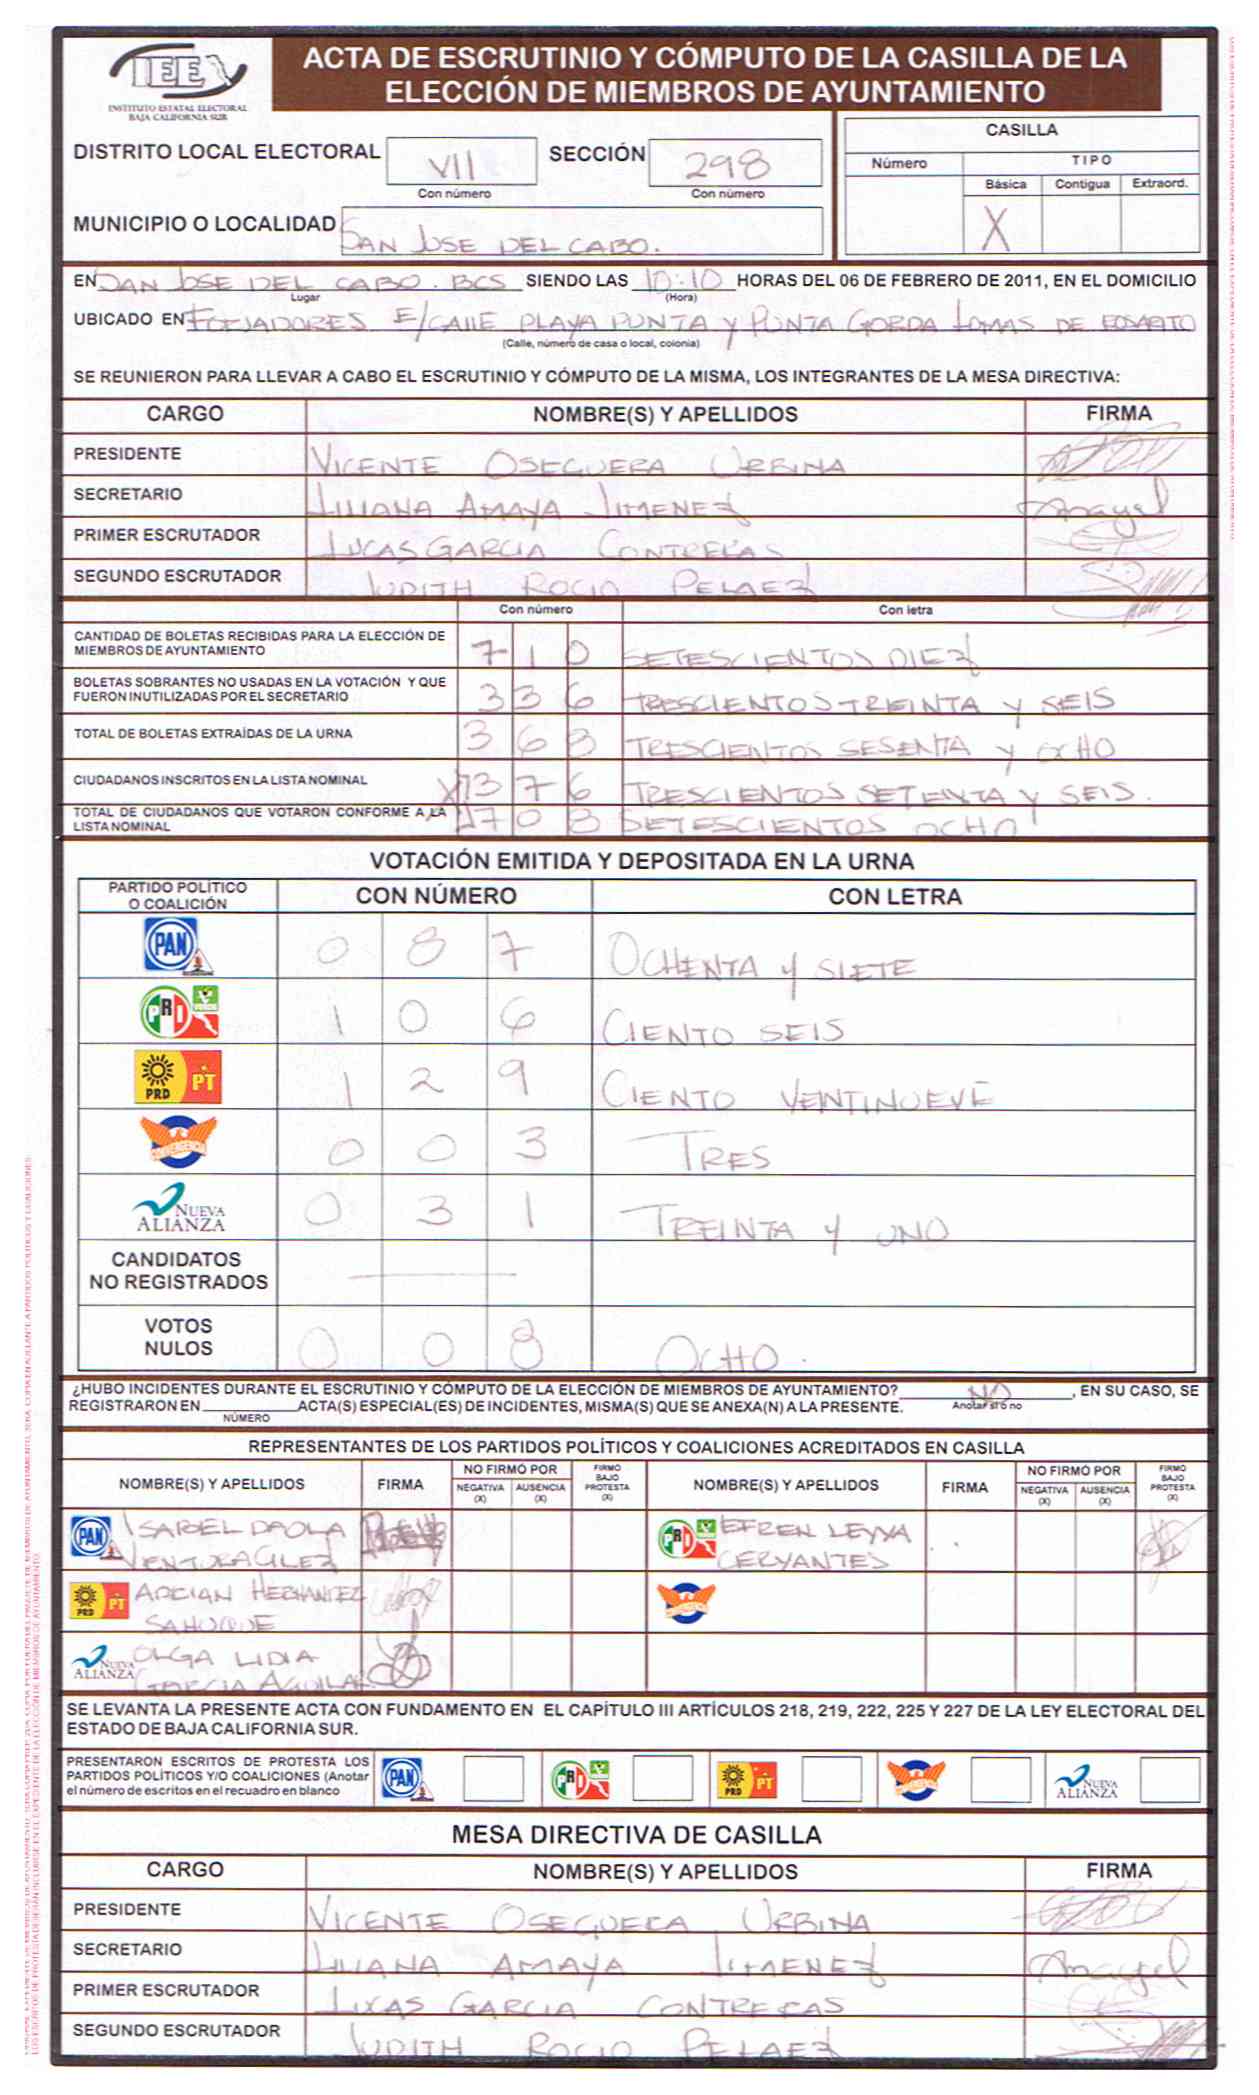 IEE
INSTITUTO ESTATAL ELECTORAL
BAJA CALIFORNIA SUR
ACTA DE ESCRUTINIO Y CÓMPUTO DE LA CASILLA DE LA
ELECCIÓN DE MIEMBROS DE AYUNTAMIENTO
DISTRITO LOCAL ELECTORAL VII SECCIÓN 298
Con número Con número
MUNICIPIO O LOCALIDAD SAN JOSE DEL CABO.
CASILLA
Número TIPO
Básica Contigua Extraord.
X
EN SAN JOSE DEL CABO. BCS SIENDO LAS 10:10 HORAS DEL 06 DE FEBRERO DE 2011, EN EL DOMICILIO
Lugar (Hora)
UBICADO EN FORJADORES E/CALLE PLAYA PUNTA y PUNTA GORDA LOMAS DE
(Calle, número de casa o local, colonia)
SE REUNIERON PARA LLEVAR A CABO EL ESCRUTINIO Y CÓMPUTO DE LA MISMA, LOS INTEGRANTES DE LA MESA DIRECTIVA:
CARGO NOMBRE(S) Y APELLIDOS FIRMA
PRESIDENTE VICENTE OSEGUERA URBINA
SECRETARIO LILIANA AMAYA JIMENEZ
PRIMER ESCRUTADOR LUCAS GARCIA CONTRERAS
SEGUNDO ESCRUTADOR JUDITH ROCIO PELAEZ
Con número Con letra
CANTIDAD DE BOLETAS RECIBIDAS PARA LA ELECCIÓN DE
MIEMBROS DE AYUNTAMIENTO 7 1 0 SETESCIENTOS DIEZ
BOLETAS SOBRANTES NO USADAS EN LA VOTACIÓN Y QUE
FUERON INUTILIZADAS POR EL SECRETARIO 3 3 6 TRESCIENTOS TREINTA y SEIS
TOTAL DE BOLETAS EXTRAÍDAS DE LA URNA 3 6 8 TRESCIENTOS SESENTA y OCHO
CIUDADANOS INSCRITOS EN LA LISTA NOMINAL 3 7 6 TRESCIENTOS SETEINTA y SEIS.
TOTAL DE CIUDADANOS QUE VOTARON CONFORME A LA
LISTA NOMINAL 7 0 8 SETESCIENTOS OCHO
VOTACIÓN EMITIDA Y DEPOSITADA EN LA URNA
PARTIDO POLÍTICO
O COALICIÓN CON NÚMERO CON LETRA
PAN 0 8 7 OCHENTA y SIETE
PRI VERDE 1 0 6 CIENTO SEIS
PRD PT 1 2 9 CIENTO VENTINUEVE
CONVERGENCIA 0 0 3 TRES
NUEVA ALIANZA 0 3 1 TREINTA y UNO
CANDIDATOS
NO REGISTRADOS
VOTOS
NULOS 0 0 8 OCHO.
¿HUBO INCIDENTES DURANTE EL ESCRUTINIO Y CÓMPUTO DE LA ELECCIÓN DE MIEMBROS DE AYUNTAMIENTO? NO , EN SU CASO, SE
REGISTRARON EN ACTA(S) ESPECIAL(ES) DE INCIDENTES, MISMA(S) QUE SE ANEXA(N) A LA PRESENTE. Anotar sí o no
NÚMERO
REPRESENTANTES DE LOS PARTIDOS POLÍTICOS Y COALICIONES ACREDITADOS EN CASILLA
NOMBRE(S) Y APELLIDOS FIRMA NO FIRMÓ POR NEGATIVA (X) AUSENCIA (X) FIRMO BAJO PROTESTA (X) NOMBRE(S) Y APELLIDOS FIRMA NO FIRMÓ POR NEGATIVA (X) AUSENCIA (X) FIRMO BAJO PROTESTA (X)
PAN ISABEL PAOLA
VENTURA
PRI EFREN LEYVA
CERVANTES
PRD PT ADRIAN HERNANDEZ
CONVERGENCIA
NUEVA ALIANZA OLGA LIDIA
GARCIA AGUILAR
SE LEVANTA LA PRESENTE ACTA CON FUNDAMENTO EN EL CAPÍTULO III ARTÍCULOS 218, 219, 222, 225 Y 227 DE LA LEY ELECTORAL DEL
ESTADO DE BAJA CALIFORNIA SUR.
PRESENTARON ESCRITOS DE PROTESTA LOS
PARTIDOS POLÍTICOS Y/O COALICIONES (Anotar
el número de escritos en el recuadro en blanco
PAN PRI PRD PT CONVERGENCIA NUEVA ALIANZA
MESA DIRECTIVA DE CASILLA
CARGO NOMBRE(S) Y APELLIDOS FIRMA
PRESIDENTE VICENTE OSEGUERA URBINA
SECRETARIO LILIANA AMAYA JIMENEZ
PRIMER ESCRUTADOR LUCAS GARCIA CONTRERAS
SEGUNDO ESCRUTADOR JUDITH ROCIO PELAEZ